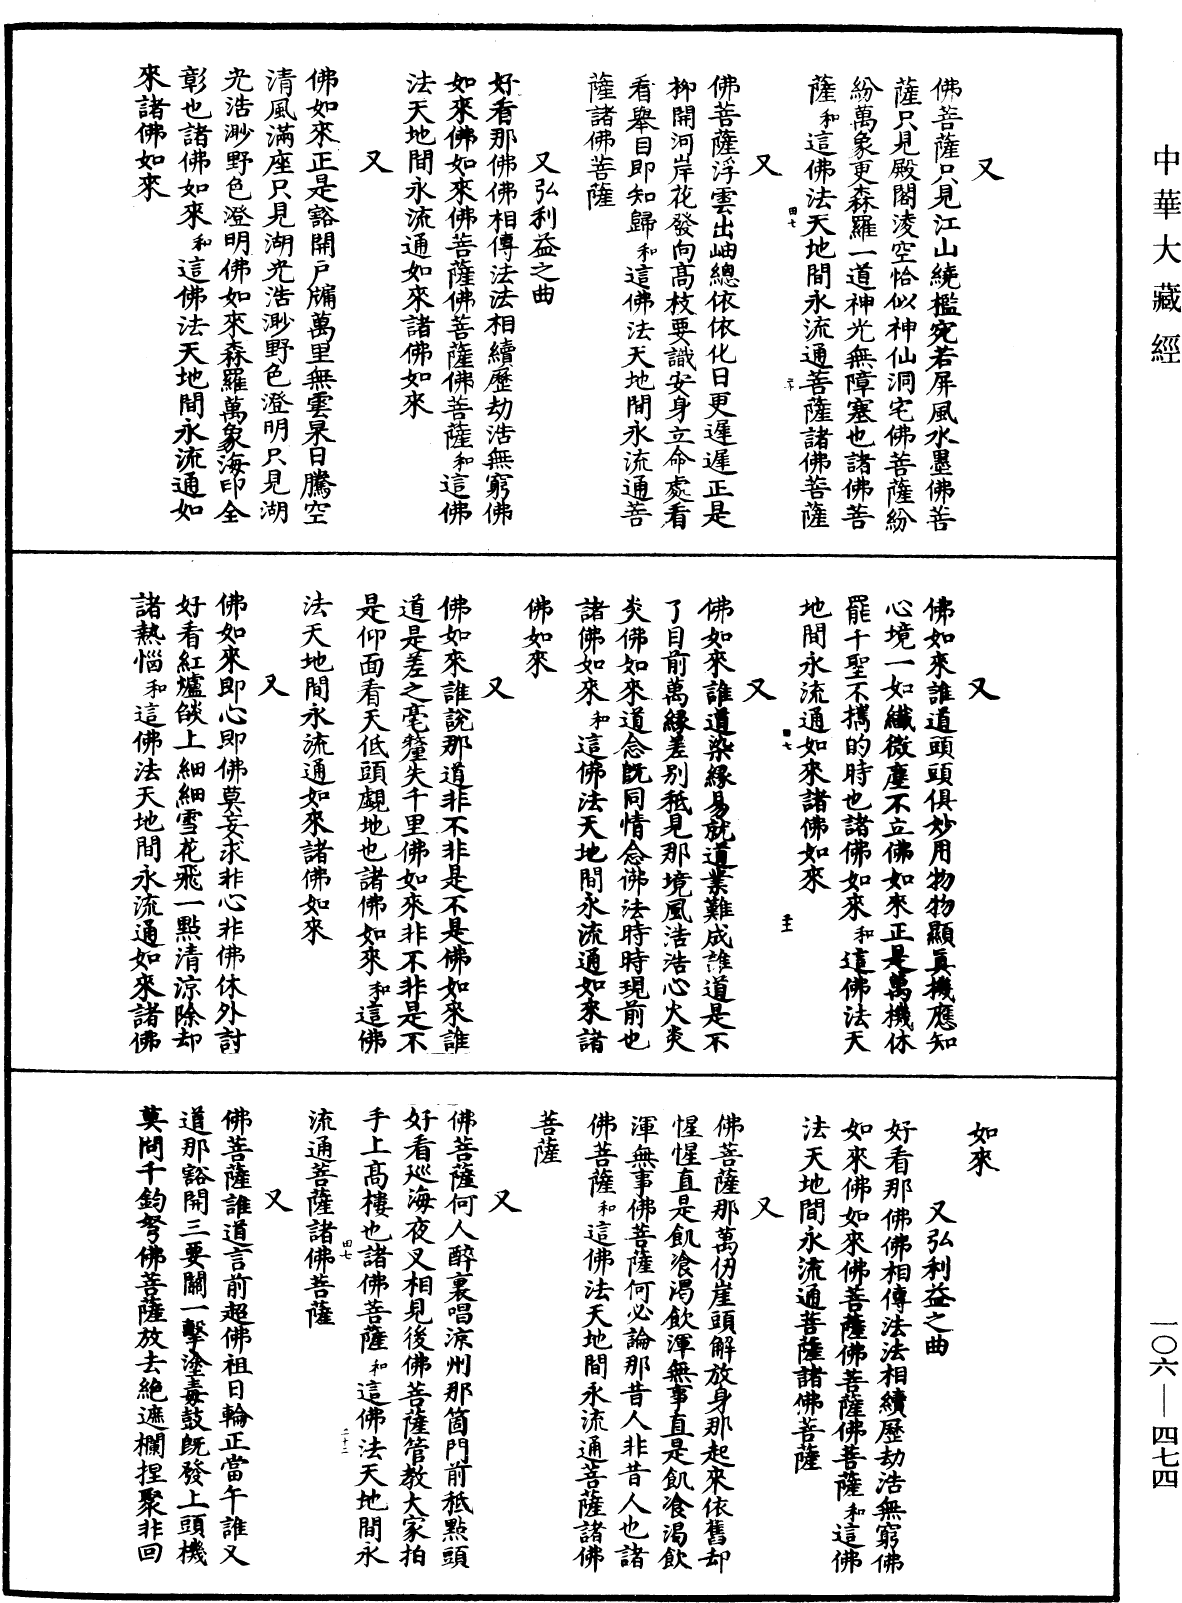 中華大藏經
又
佛菩薩只見江山繞檻宛若屏風水墨佛菩
薩只見殿閣淩空恰似神仙洞宅佛菩薩紛
紛萬象更森羅一道神光無障塞也諸佛菩
薩和這佛法天地間永流通菩薩諸佛菩薩
又
佛菩薩浮雲出岫總依依化日更遲遲正是
柳開河岸花發向高枝要識安身立命處看
看舉目即知歸和這佛法天地間永流通菩
薩諸佛菩薩
又弘利益之曲
好看那佛佛相傳法法相續歷劫浩無窮佛
如來佛如來佛菩薩佛菩薩佛菩薩和這佛
法天地間永流通如來諸佛如來
又
佛如來正是豁開戶牖萬里無雲杲日騰空
清風滿座只見湖光浩渺野色澄明只見湖
光浩渺野色澄明佛如來森羅萬象海印全
彰也諸佛如來和這佛法天地間永流通如
來諸佛如來
又
佛如來誰道頭頭俱妙用物物顯真機應知
心境一如纖微塵不立佛如來正是萬機休
罷千聖不攜的時也諸佛如來和這佛法天
地間永流通如來諸佛如來
又
佛如來誰道染緣易就道業難成誰道是不
了目前萬緣差別秪見那境風浩浩心火炎
炎佛如來道念旣同情念佛法時時現前也
諸佛如來和這佛法天地間永流通如來諸
佛如來
又
佛如來誰說那道非不非是不是佛如來誰
道是差之毫釐失千里佛如來非不非是不
是仰面看天低頭覷地也諸佛如來和這佛
法天地間永流通如來諸佛如來
又
佛如來即心即佛莫妄求非心非佛休外討
好看紅爐燄上細細雪花飛一點清涼除却
諸熱惱和這佛法天地間永流通如來諸佛
如來
又弘利益之曲
好看那佛佛相傳法法相續歷劫浩無窮佛
如來佛如來佛菩薩佛菩薩佛菩薩和這佛
法天地間永流通菩薩諸佛菩薩
又
佛菩薩那萬仞崖頭解放身那起來依舊却
惺惺直是飢飡渴飲渾無事直是飢飡渴飲
渾無事佛菩薩何必論那昔人非昔人也諸
佛菩薩和這佛法天地間永流通菩薩諸佛
菩薩
又
佛菩薩何人醉裏唱涼州那箇門前秪點頭
好看廵海夜叉相見後佛菩薩管教大家拍
手上高樓也諸佛菩薩和這佛法天地間永
流通菩薩諸佛菩薩
又
佛菩薩誰道言前超佛祖日輪正當午誰又
道那豁開三要關一擊塗毒鼓旣發上頭機
莫問千鈞弩佛菩薩放去絕遮欄捏聚非回
一〇六—四七四